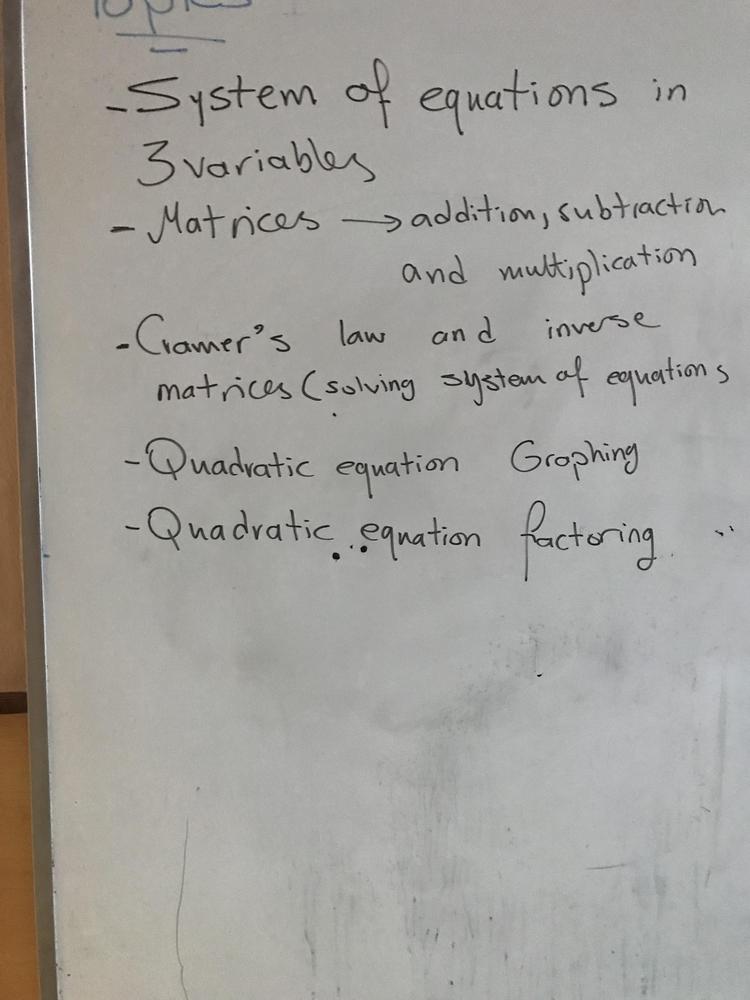 Topics
- System of equations in
3 variables
- Matrices → addition, subtraction
and multiplication
- Cramer's law and inverse
matrices (solving system of equations
- Quadratic equation Graphing
- Quadratic equation factoring